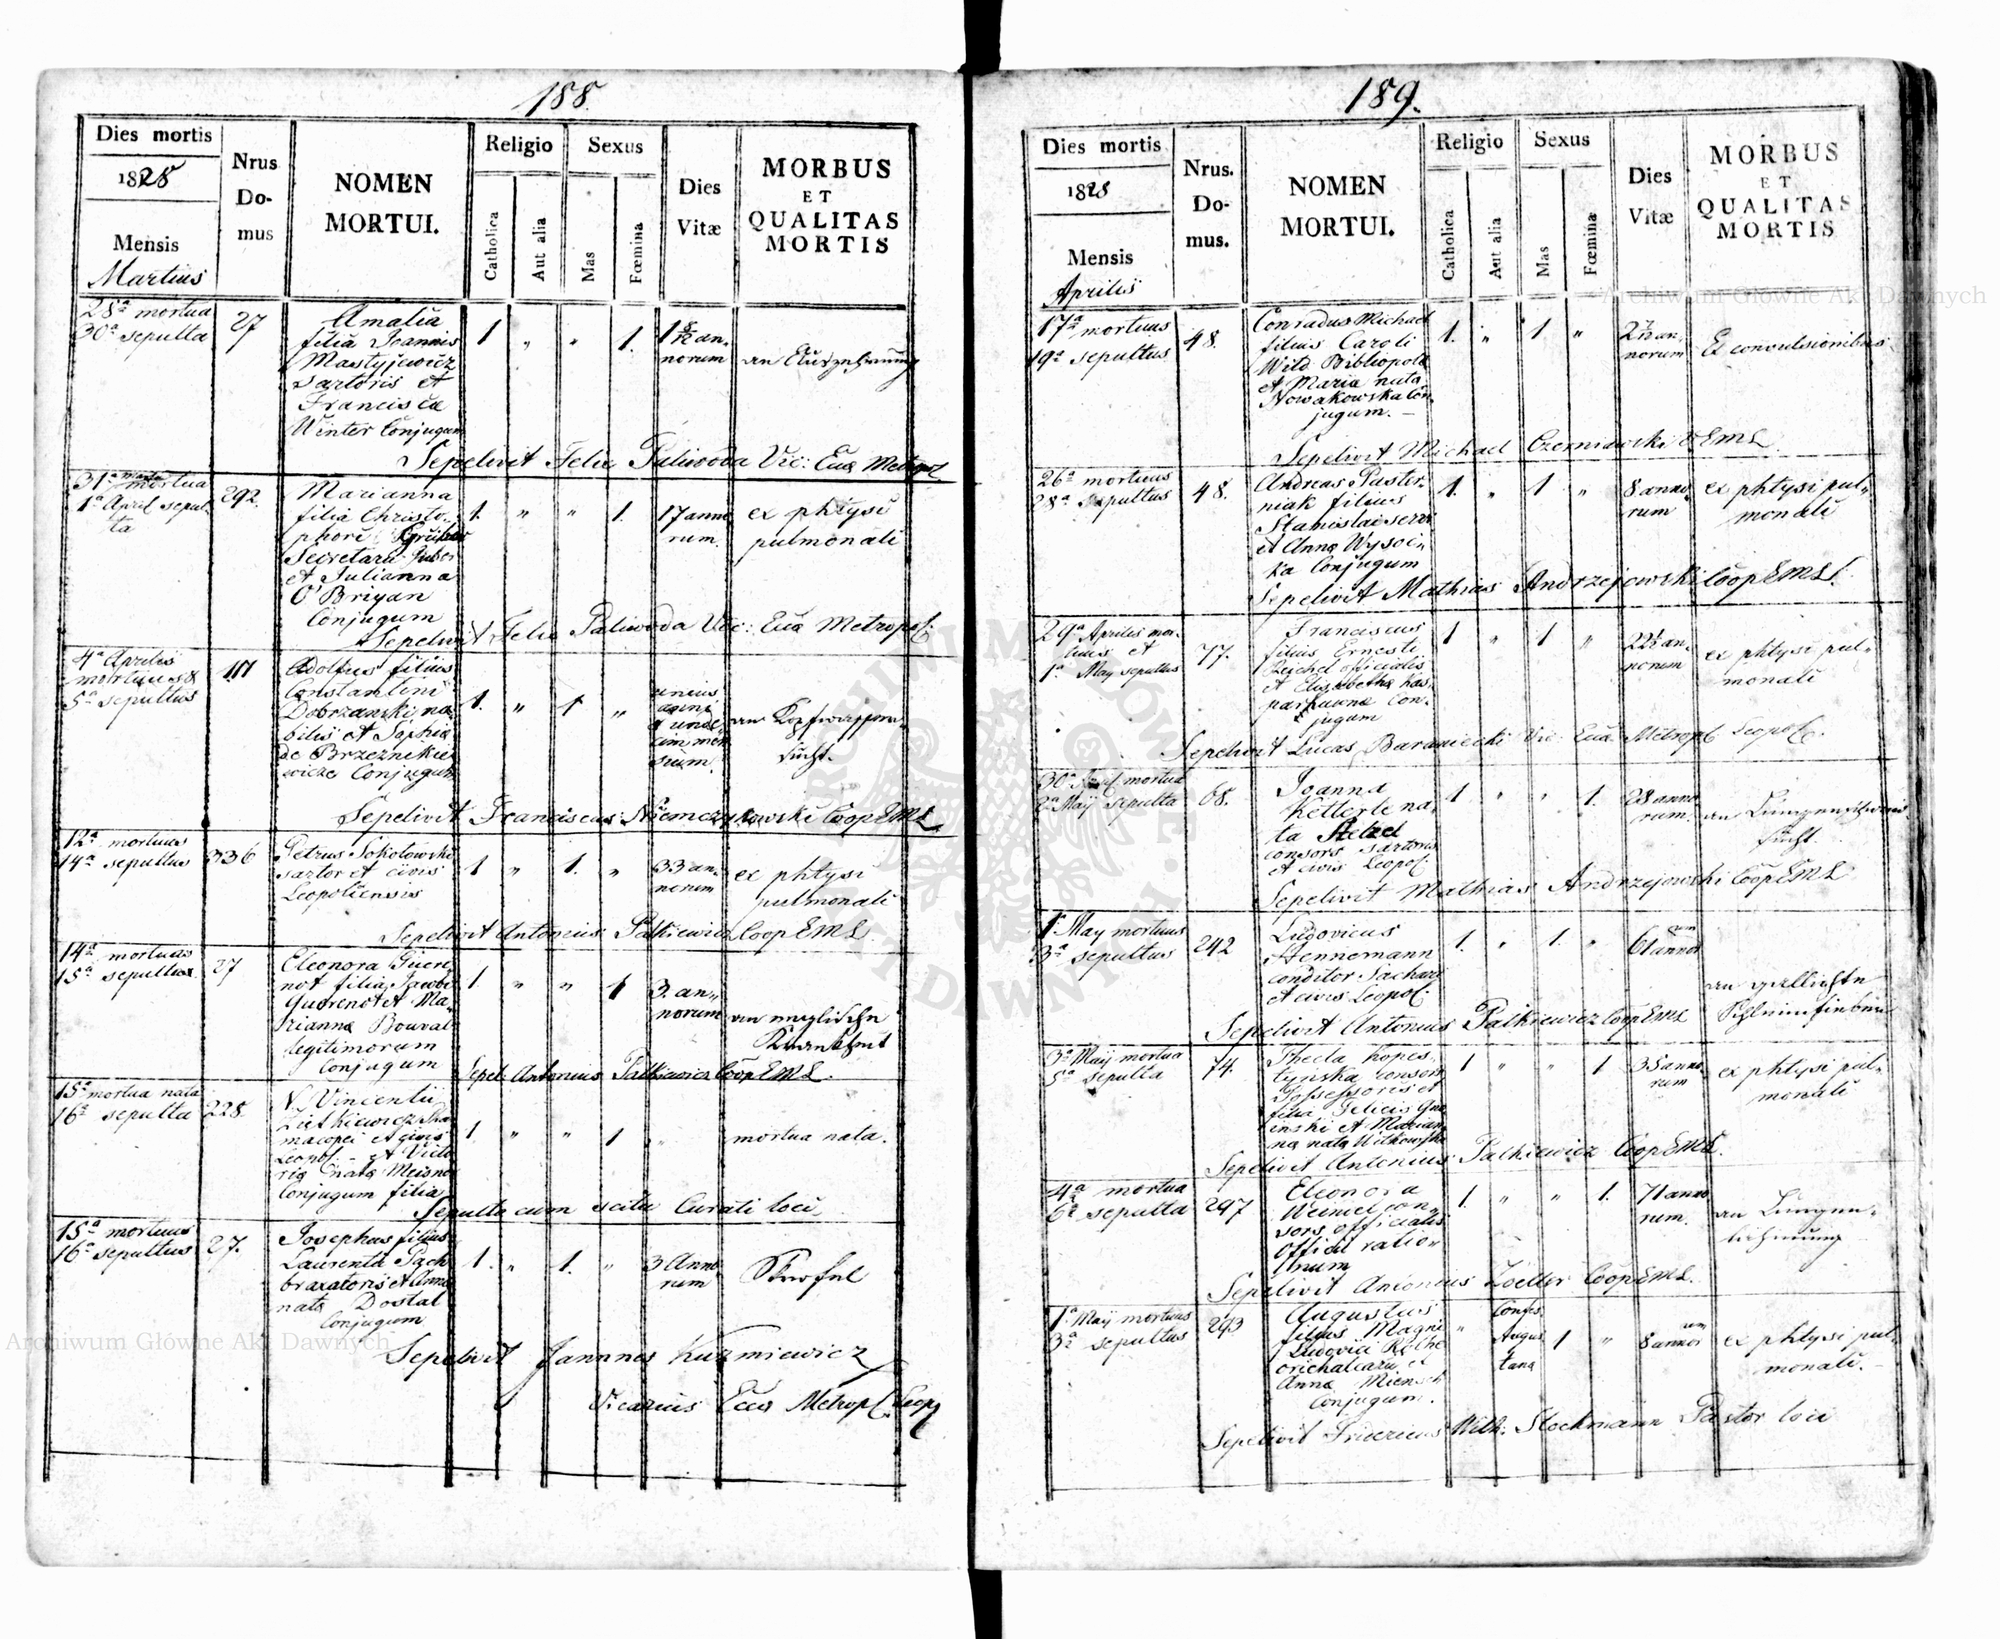 188.
Dies mortis
1828
Mensis
Martius
Nrus
Do-
mus
NOMEN
MORTUI.
Religio
Catholica
Aut alia
Sexus
Mas
Fœmina
Dies
Vitæ
MORBUS
ET
QUALITAS
MORTIS
28ª mortua
30ª sepulta
27
Amalia
filia Joannis
Mastyjewicz
sartoris et
Francisca
Winter Conjugum
1 " " 1.
an-
norum
an Auszehrung
Sepelivit Felix Paliwoda Vic: Ecæ Metropol.
31ª mortua
1ª April sepul-
ta
292.
Marianna
filia Christo-
phori Gruber
Secretarii
et Julianna
O'Bryan
Conjugum
1. " " 1.
17 anno
rum.
ex phtysi
pulmonali
Sepelivit Felix Paliwoda Vic: Ecæ Metropol.
4ª Aprilis
mortuus &
5ª sepultus
Adolfus filius
Constantini
Dobrzanski no-
bilis et Sophia
de Brzeznikie-
wicze Conjugum
1. " 1 "
unius
anni
et unde-
cim men-
sium.
an Kopfwasser-
sucht.
Sepelivit Franciscus Niemczykowski Coop EML.
12ª mortuus
14ª sepultus
336
Petrus Sokołowski
sartor et civis
Leopoliensis
1 " 1. "
33 an-
norum
ex phtysi
pulmonali
Sepelivit Antonius Palkiewicz Coop EML.
14ª mortuus
15ª sepultus
27
Eleonora Guere
not filia Jacobi
Guerenot et Ma-
rianna Bouval
legitimorum
Conjugum
1. " " 1
3. an-
norum
an englische
Krankheit
Sepel: Antonius Palkiewicz Coop EML.
15ª mortua nata
16ª sepulta
228
N. Vincentii
Ziętkiewicz Phar
macopei et civis
Leopol. et Victo
ria nata Meisner
Conjugum filia
1. " " 1 "
mortua nata.
Sepulta cum scitu Curati loci.
15ª mortuus
16ª sepultus
27.
Josephus filius
Laurentii Pach
braxatoris et Anna
nata Dostal
Conjugum
1. " 1. "
3 Anno
rum
Skrofel
Sepelivit Joannes Kuzmiewicz
Vicarius Ecæ Metropol. Leop.
189.
Dies mortis
1828
Mensis
Aprilis
Nrus.
Do-
mus.
NOMEN
MORTUI.
Religio
Catholica
Aut alia
Sexus
Mas
Fœmina
Dies
Vitæ
MORBUS
ET
QUALITAS
MORTIS
17ª mortuus
19ª sepultus
48.
Conradus Michael
filius Caroli
Wild Bibliopola
et Maria nata
Nowakowska Con-
jugum.
1. " 1 "
an-
norum
Ex convulsionibus
Sepelivit Michael Czerniawski EML.
26ª mortuus
28ª sepultus
48.
Andreas Paster-
niak filius
Stanislai servi
et Anna Wysoc-
ka Conjugum
1. " 1 "
8 anno
rum
ex phtysi pul-
monali
Sepelivit Mathias Andrzejowski Coop EML.
29ª Aprilis mor-
tuus et
1ª May sepultus
77.
Franciscus
filius Ernesti
Reichel officialis
et Elisabetha Kas-
parhauna Con-
jugum
1 " 1 "
22½ an-
norum
ex phtysi pul-
monali
Sepelivit Lucas Baraniecki Vic: Ecæ Metropol Leopol.
30ª April mortua
2ª Maij sepulta
68.
Joanna
Ketterle na-
ta Stelzel
consors sartoris
et civis Leopol:
1. " " 1.
28 anno
rum.
an Lungenschwind-
sucht.
Sepelivit Mathias Andrzejowski Coop EML
1ª May mortuus
3ª sepultus
242
Ludovicus
Hennemann
conditor Sachari
et civis Leopol:
1. " 1. "
61 annor
rum
an gallichte
Sepelivit Antonius Palkiewicz Coop EML
3ª Maij mortua
5ª sepulta
74.
Thecla Kopes-
tynska consors
Possessoris et
filia Felicis Gno
inski et Marian
na nata Witkowska
1 " " 1
35 anno
rum
ex phtysi pul-
monali
Sepelivit Antonius Palkiewicz Coop EML.
4ª mortua
6ª sepulta
297
Eleonora
Weiniel con-
sors officialis
Officii ratio-
num
1. " " 1.
71 anno
rum.
an Lungen-
lähmung
Sepelivit Antonius Zoeller Coop EML.
1ª Maij mortuus
3ª sepultus
293
Augustus
filius Magni
Ludovici Rothe
orichalcarii et
Anna Miensch
Conjugum.
"
Confes.
Augus
tana
1 "
8 annor
um
ex phtysi pul-
monali.
Sepelivit Fridericus Wilh: Stockmann Pastor loci
Archiwum Główne Akt Dawnych
Archiwum Główne Akt Dawnych
ARCHIWUM GŁÓWNE AKT DAWNYCH